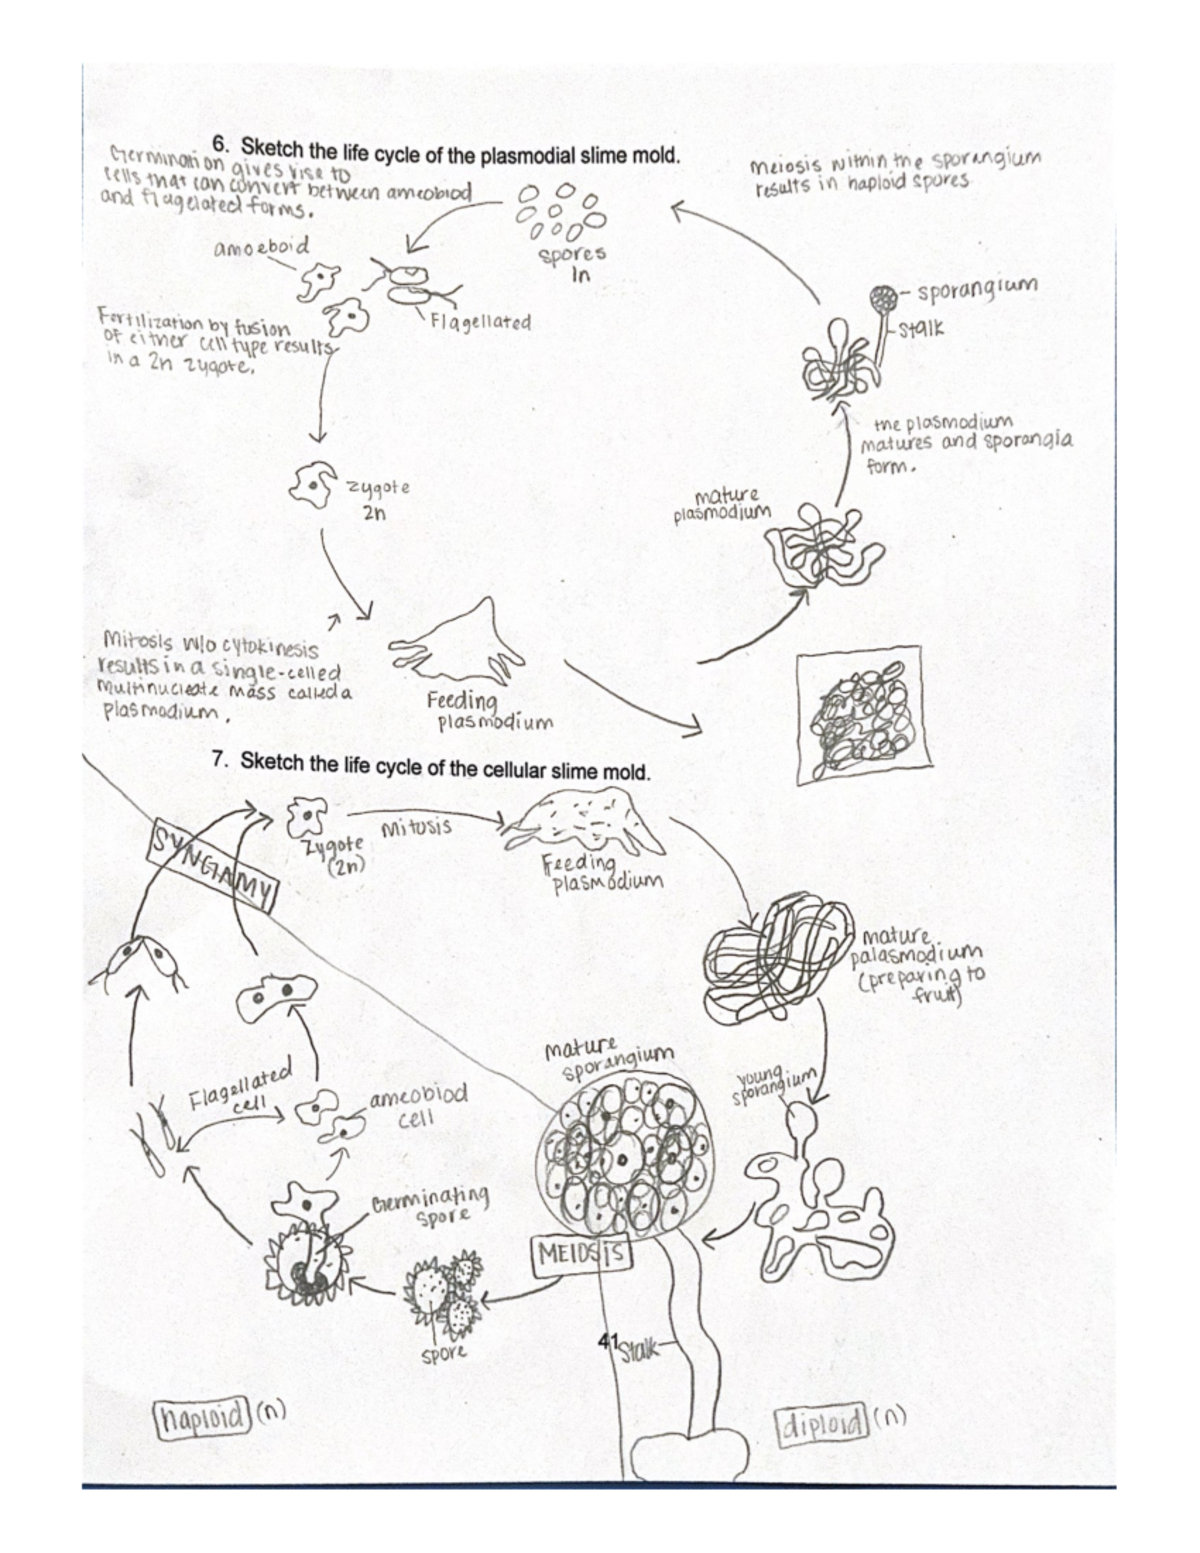 6. Sketch the life cycle of the plasmodial slime mold.
Germination gives rise to
cells that can convert between ameobiod
and flagelated forms.
meiosis within the sporangium
results in haploid spores.
spores
1n
amoeboid
Flagellated
sporangium
stalk
Fertilization by fusion
of either cell type results
in a 2n zygote.
the plasmodium
matures and sporangia
form.
zygote
2n
mature
plasmodium
Mitosis w/o cytokinesis
results in a single-celled
multinucleate mass called a
plasmodium.
Feeding
plasmodium
7. Sketch the life cycle of the cellular slime mold.
SYNGAMY
Zygote
(2n)
Mitosis
Feeding
plasmodium
mature
palasmodium
(preparing to
fruit)
mature
sporangium
young
sporangium
Flagellated
cell
ameobiod
cell
Germinating
spore
MEIOSIS
spore
41
Stalk
haploid (n)
diploid (n)